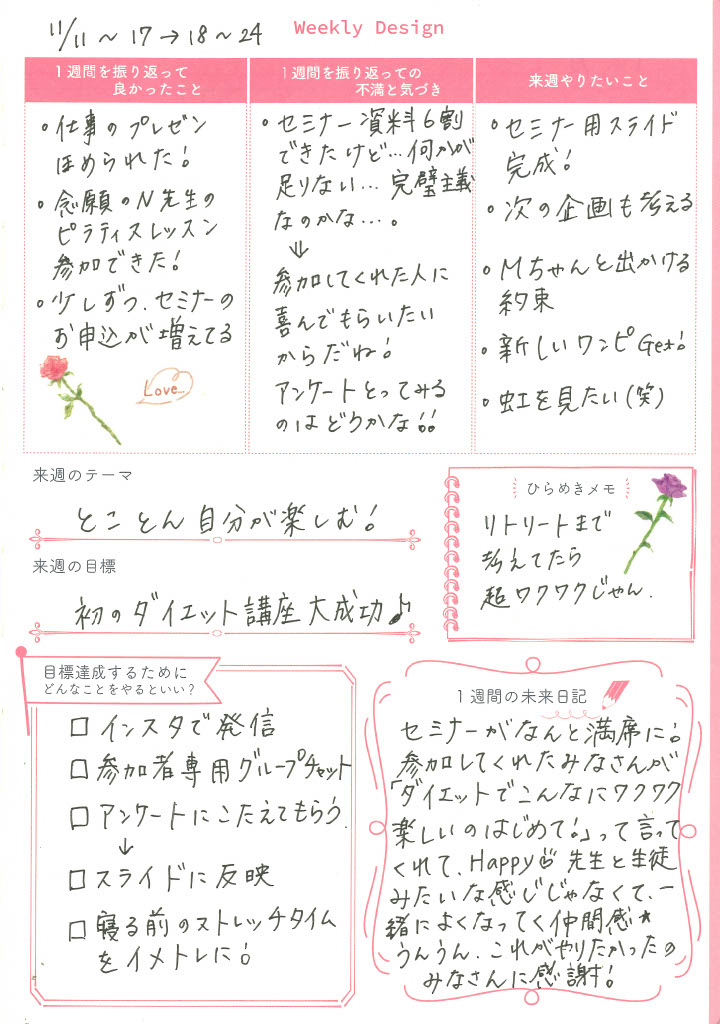 11/11〜17→18〜24
Weekly Design
1週間を振り返って
良かったこと
・仕事のプレゼン
ほめられた!
・念願のN先生の
ピラティスレッスン
参加できた!
・少しずつ、セミナーの
お申込が増えてる
Love...
1週間を振り返っての
不満と気づき
・セミナー資料6割
できたけど…何かが
足りない…完璧主義
なのかな…。
↓
参加してくれた人に
喜んでもらいたい
からだね!
アンケートとってみる
のはどうかな!!
来週やりたいこと
・セミナー用スライド
完成!
・次の企画も考える
・Mちゃんと出かける
約束
・新しいワンピGet!
・虹を見たい(笑)
来週のテーマ
とことん自分が楽しむ!
来週の目標
初のダイエット講座大成功♪
ひらめきメモ
リトリートまで
考えてたら
超ワクワクじゃん.
目標達成するために
どんなことをやるといい?
□インスタで発信
□参加者専用グループチャット
□アンケートにこたえてもらう
↓
□スライドに反映
□寝る前のストレッチタイム
をイメトレに!
1週間の未来日記
セミナーがなんと満席に!
参加してくれたみなさんが
「ダイエットでこんなにワクワク
楽しいのはじめて!」って言って
くれて、Happy 先生と生徒
みたいな感じじゃなくて、一
緒によくなってく仲間感★
うんうん、これがやりたかったの
みなさんに感謝す!